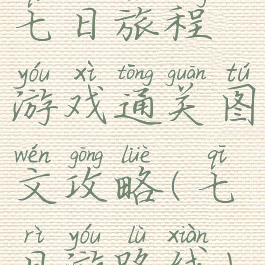 七日旅程
yóu xì tōng guān tú
游戏通关图
wén gōng lüè qī
文攻略(七
rì yóu lù xiàn
日游路线)